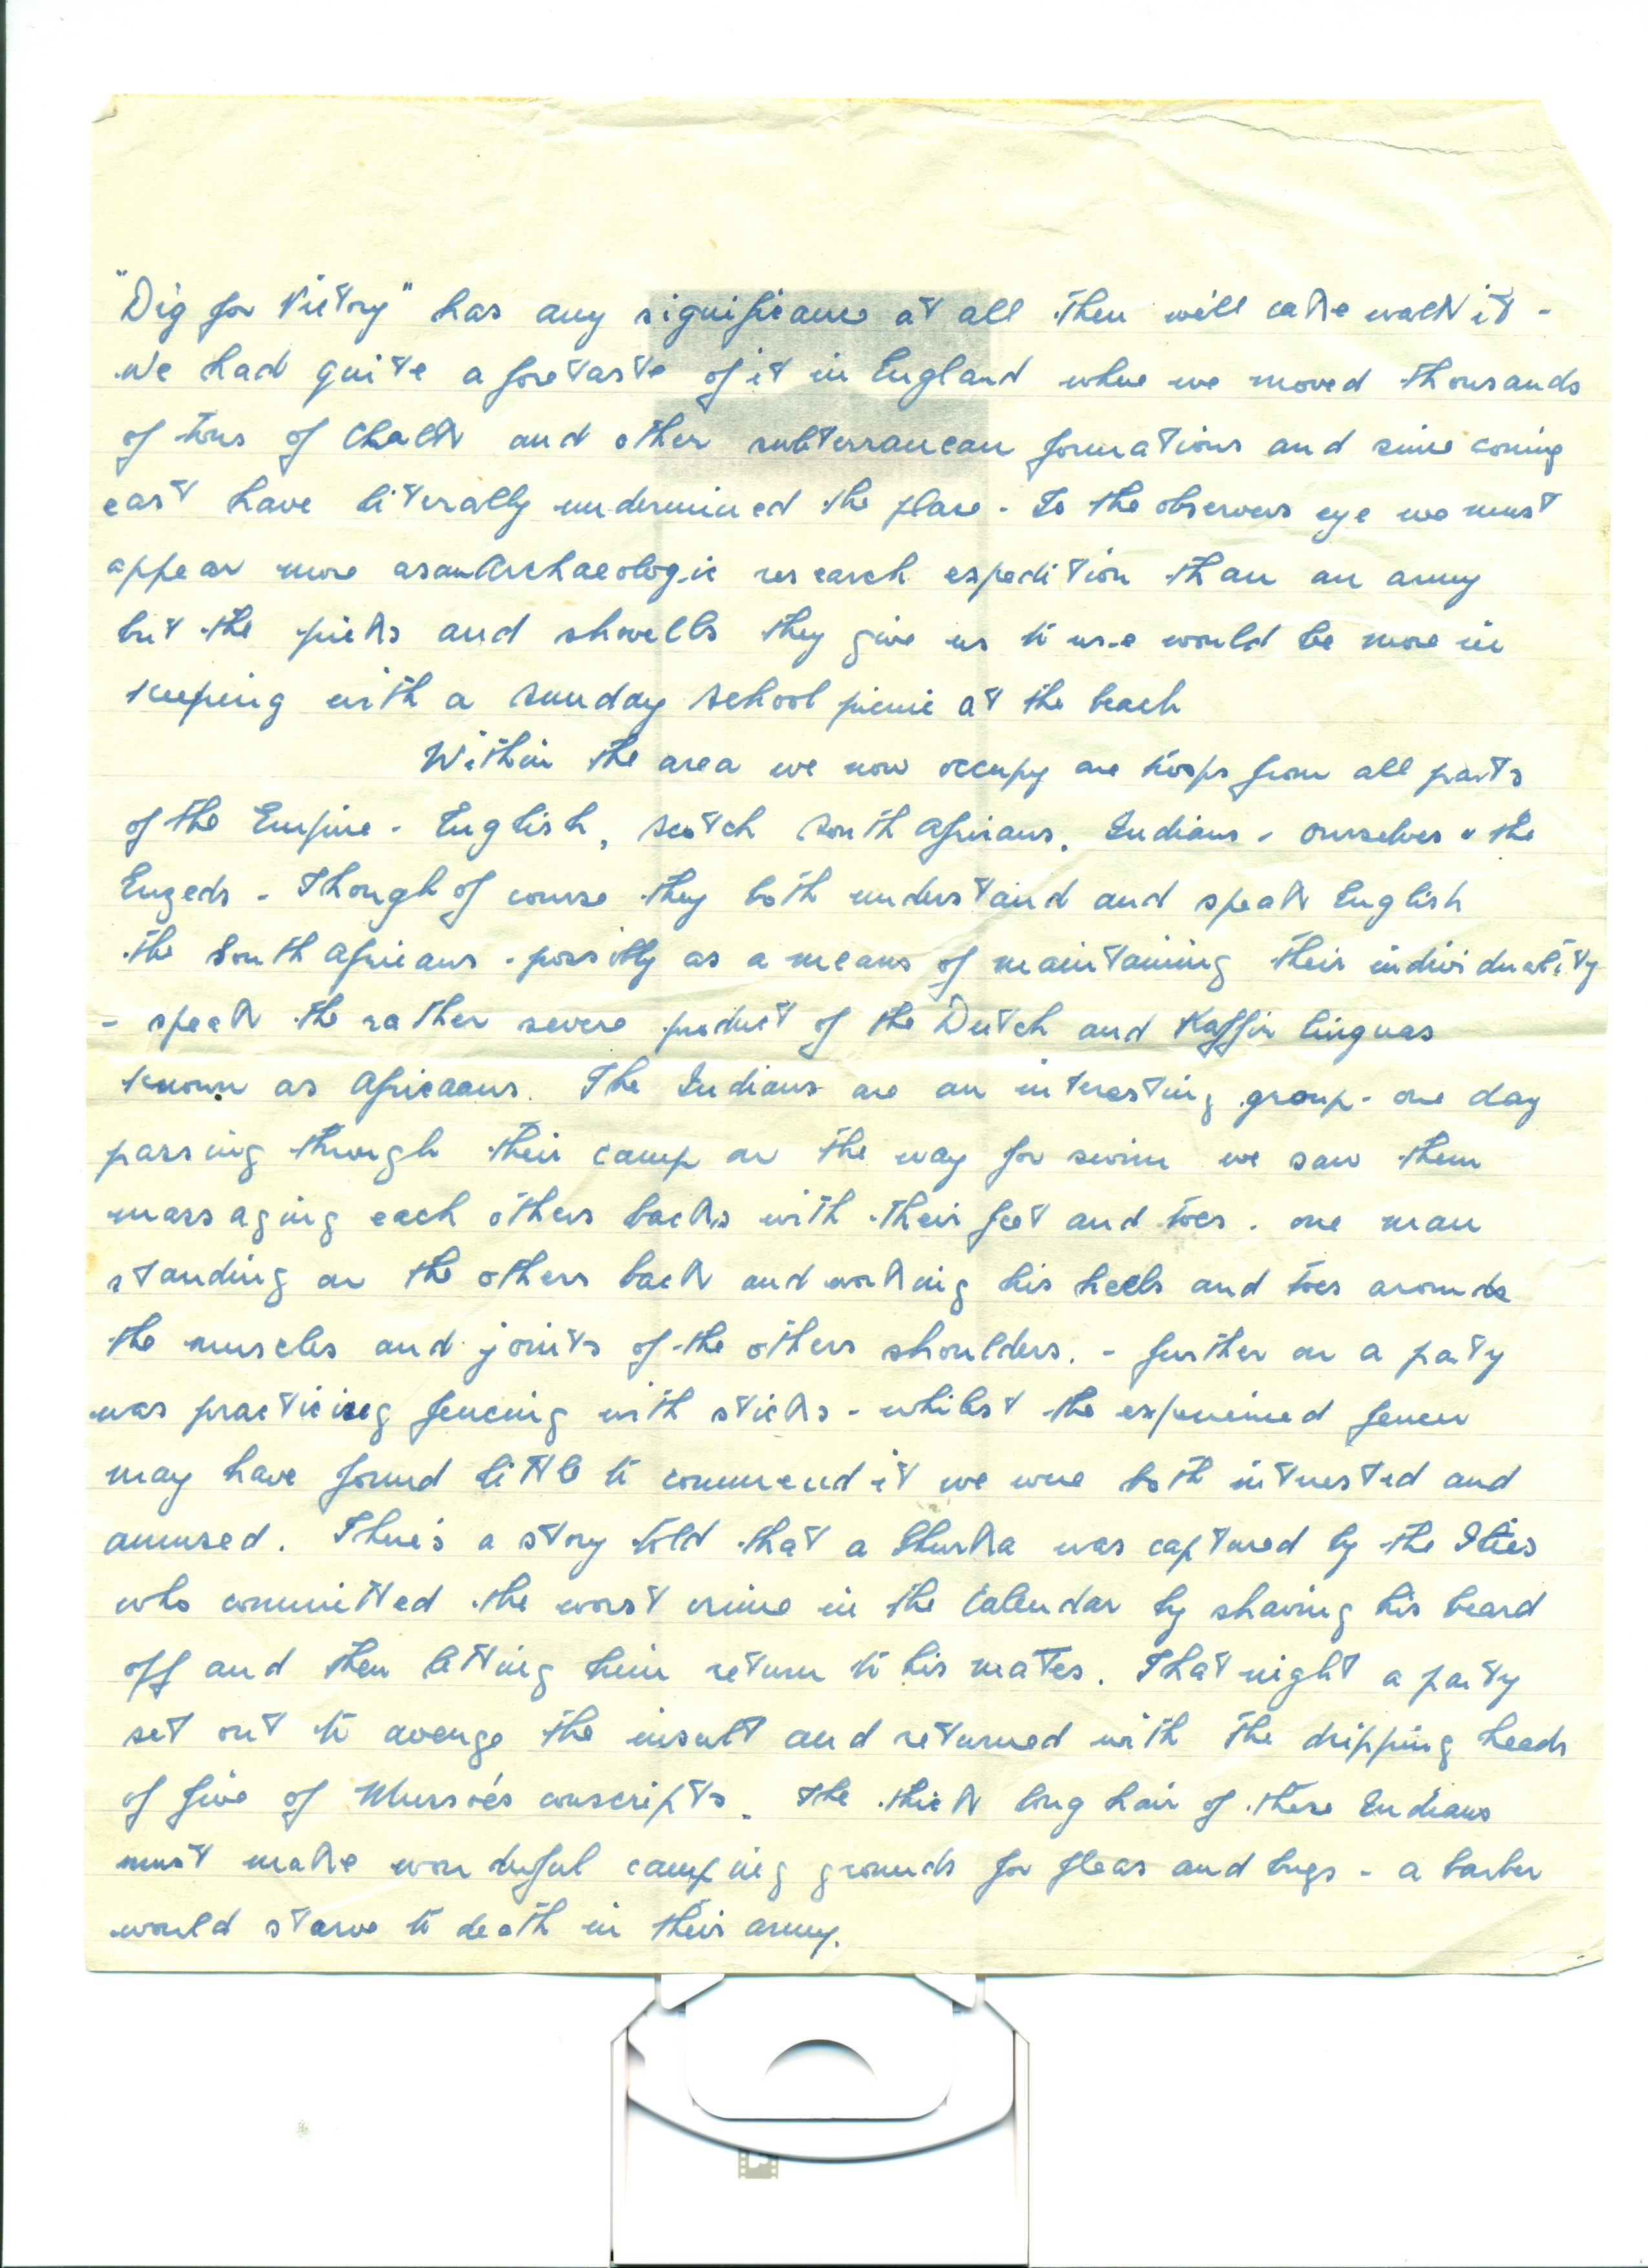 "Dig for Victory" has any significance at all then will cake walk it -
We had quite a foretaste of it in England where we moved thousands
of tons of Chalk and other subterranean formations and since coming
east have literally undermined the place - To the observers eye we must
appear more as an Archaeologic research expedition than an army
but the picks and shovells they give us to use would be more in
keeping with a Sunday School picnic at the beach
Within the area we now occupy are troops from all parts
of the Empire - English, Scotch South Africans, Indians - ourselves & the
Enzeds - Though of course they both understand and speak English
the South Africans - possibly as a means of maintaining their individuality
- speak the rather severe product of the Dutch and Kaffir linguas
known as Africaans. The Indians are an interesting group - one day
passing through their camp on the way for swim we saw them
massaging each others backs with their feet and toes - one man
standing on the others back and working his heels and toes around
the muscles and joints of the others shoulders. - further on a party
was practicing fencing with sticks - whilst the experienced fencer
may have found little to commend it we were both interested and
amused. There's a story told that a Ghurka was captured by the Ities
who committed the worst crime in the Calendar by shaving his beard
off and then letting him return to his mates. That night a party
set out to avenge the insult and returned with the dripping heads
of five of Musso's conscripts. The thick long hair of these Indians
must make wonderful camping grounds for fleas and bugs - a barber
would starve to death in their army.